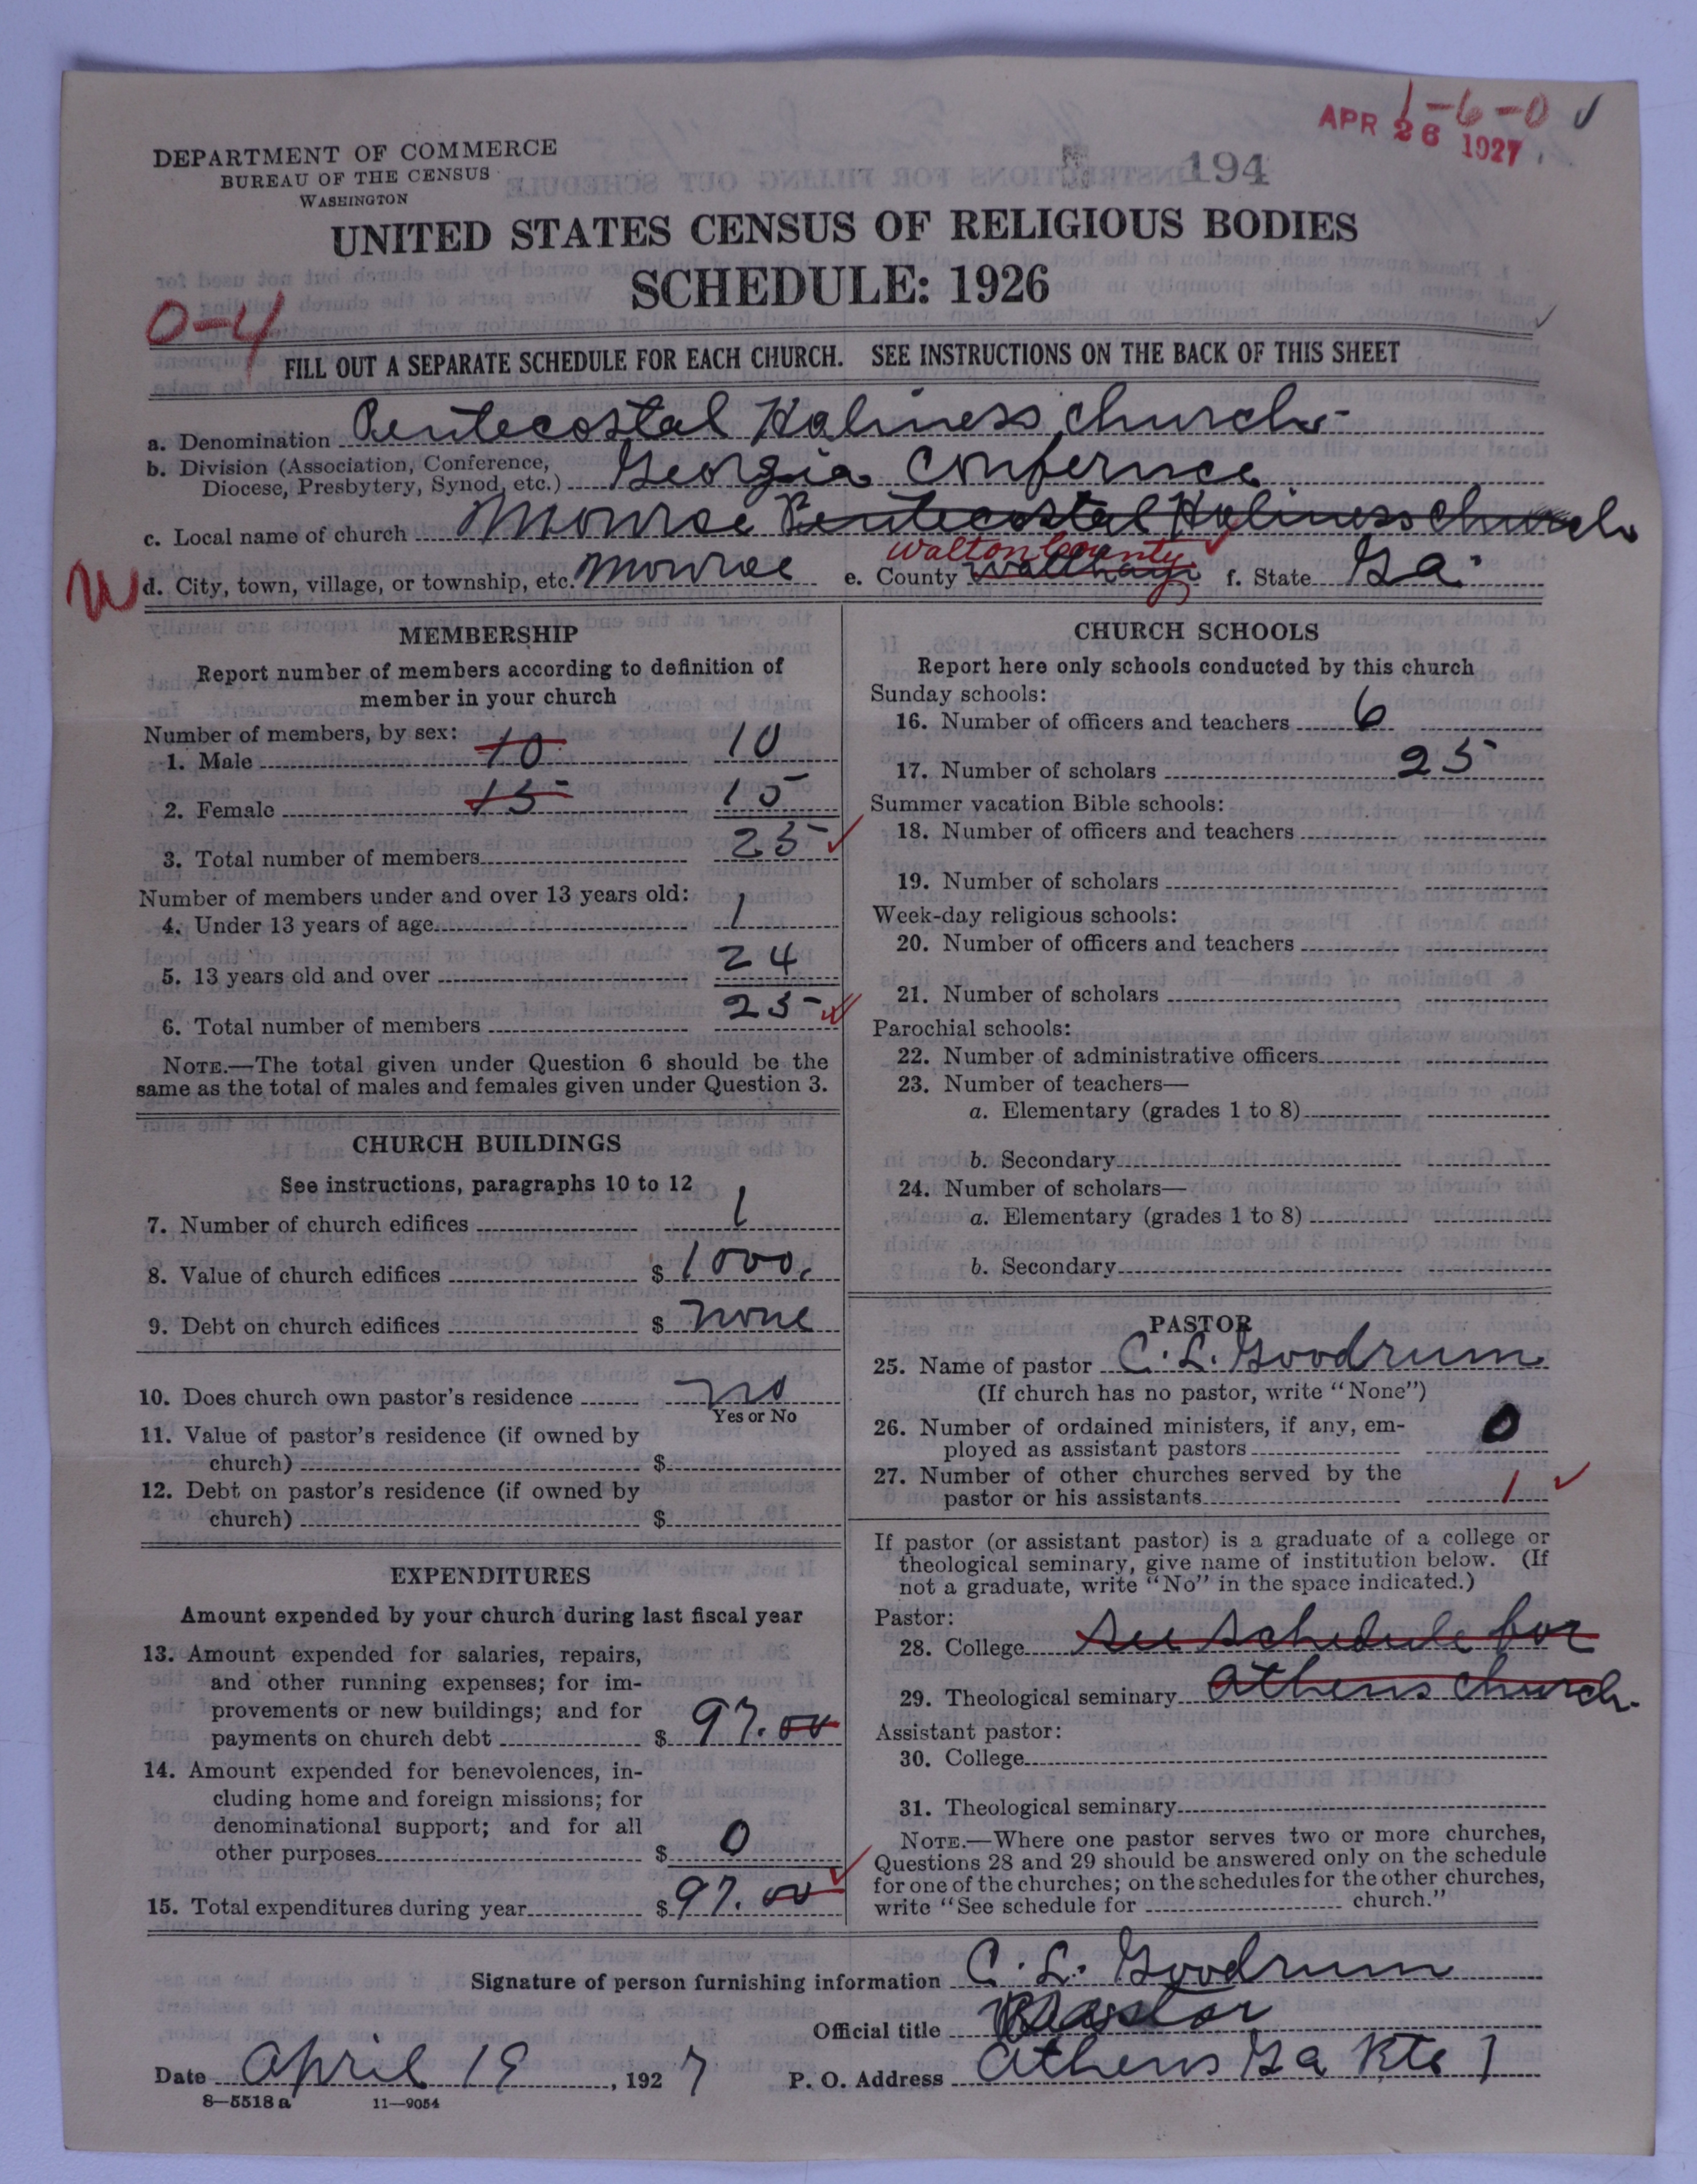 1-6-0 ✓
APR 26 1927
194
DEPARTMENT OF COMMERCE
BUREAU OF THE CENSUS
WASHINGTON
UNITED STATES CENSUS OF RELIGIOUS BODIES
SCHEDULE: 1926
0-4
FILL OUT A SEPARATE SCHEDULE FOR EACH CHURCH. SEE INSTRUCTIONS ON THE BACK OF THIS SHEET
a. Denomination Pentecostal Holiness church
b. Division (Association, Conference,
Diocese, Presbytery, Synod, etc.) Georgia Confernce
c. Local name of church Monroe Pentecostal Holiness church
Walton County
W d. City, town, village, or township, etc. Monroe e. County f. State Ga.
MEMBERSHIP
Report number of members according to definition of
member in your church
Number of members, by sex:
1. Male 10 10
2. Female 15 15
3. Total number of members 25
Number of members under and over 13 years old:
4. Under 13 years of age 1
5. 13 years old and over 24
6. Total number of members 25
NOTE.—The total given under Question 6 should be the
same as the total of males and females given under Question 3.
CHURCH BUILDINGS
See instructions, paragraphs 10 to 12
7. Number of church edifices 1
8. Value of church edifices $ 1000.
9. Debt on church edifices $ none
10. Does church own pastor's residence no
Yes or No
11. Value of pastor's residence (if owned by
church) $
12. Debt on pastor's residence (if owned by
church) $
EXPENDITURES
Amount expended by your church during last fiscal year
13. Amount expended for salaries, repairs,
and other running expenses; for im-
provements or new buildings; and for
payments on church debt $ 97.00
14. Amount expended for benevolences, in-
cluding home and foreign missions; for
denominational support; and for all
other purposes $ 0
15. Total expenditures during year $ 97.00
CHURCH SCHOOLS
Report here only schools conducted by this church
Sunday schools:
16. Number of officers and teachers 6
17. Number of scholars 25
Summer vacation Bible schools:
18. Number of officers and teachers
19. Number of scholars
Week-day religious schools:
20. Number of officers and teachers
21. Number of scholars
Parochial schools:
22. Number of administrative officers
23. Number of teachers—
a. Elementary (grades 1 to 8)
b. Secondary
24. Number of scholars—
a. Elementary (grades 1 to 8)
b. Secondary
PASTOR
25. Name of pastor C. L. Goodrum
(If church has no pastor, write "None")
26. Number of ordained ministers, if any, em-
ployed as assistant pastors 0
27. Number of other churches served by the
pastor or his assistants 1
If pastor (or assistant pastor) is a graduate of a college or
theological seminary, give name of institution below. (If
not a graduate, write "No" in the space indicated.)
Pastor:
28. College see schedule for
29. Theological seminary athens church
Assistant pastor:
30. College
31. Theological seminary
NOTE.—Where one pastor serves two or more churches,
Questions 28 and 29 should be answered only on the schedule
for one of the churches; on the schedules for the other churches,
write "See schedule for church."
Signature of person furnishing information C. L. Goodrum
Official title Pastor
Date april 19, 1927 P. O. Address athens Ga Rte 1
8—5518 a 11—9054